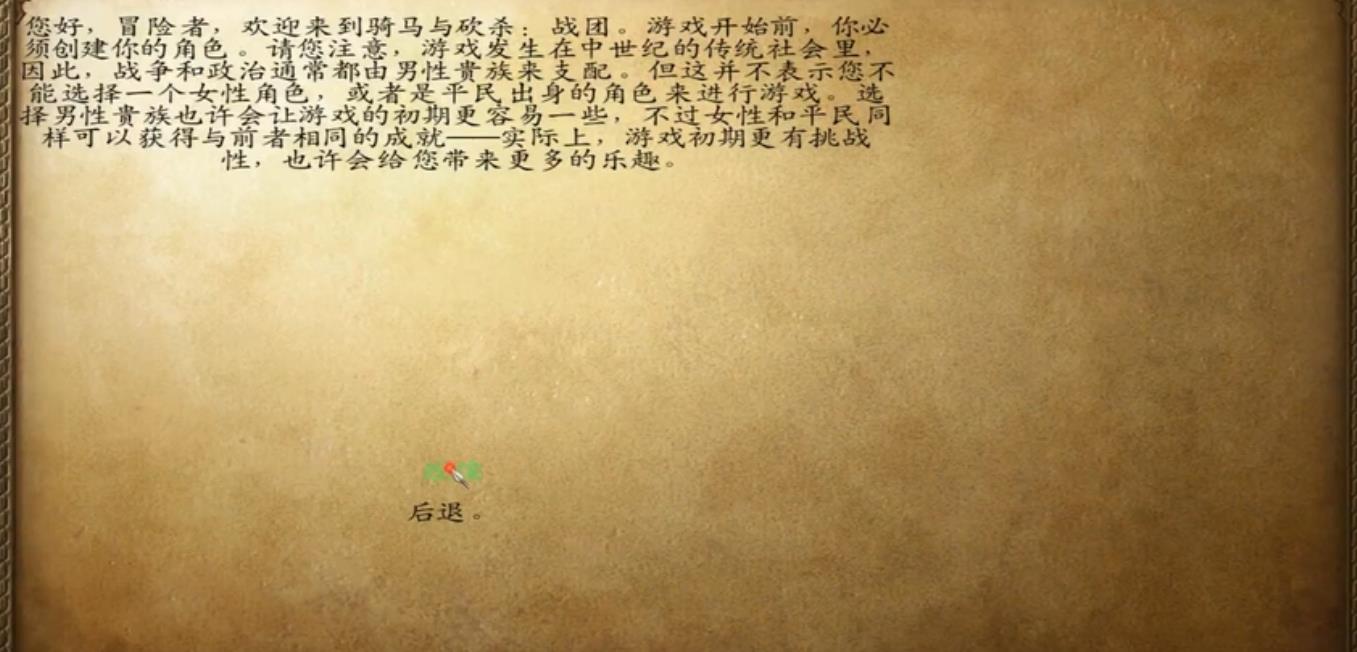 您好，冒险者，欢迎来到骑马与砍杀：战团。游戏开始前，你必
须创建你的角色。请您注意，游戏发生在中世纪的传统社会里，
因此，战争和政治通常都由男性貴族来支配。但这并不表示您不
能选择一个女性角色，或者是平民出身的角色来进行游戏。选
择男性貴族也许会让游戏的初期更容易一些，不过女性和平民同
样可以获得与前者相同的成就——实际上，游戏初期更有挑战
性，也许会给您带来更多的乐趣。
后退。